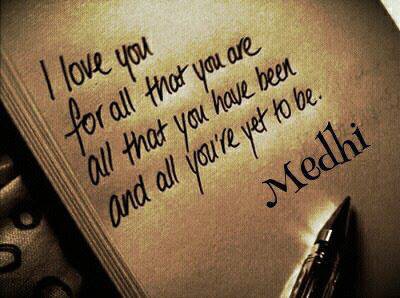 I love you
for all that you are
all that you have been
and all you're yet to be.
Medhi